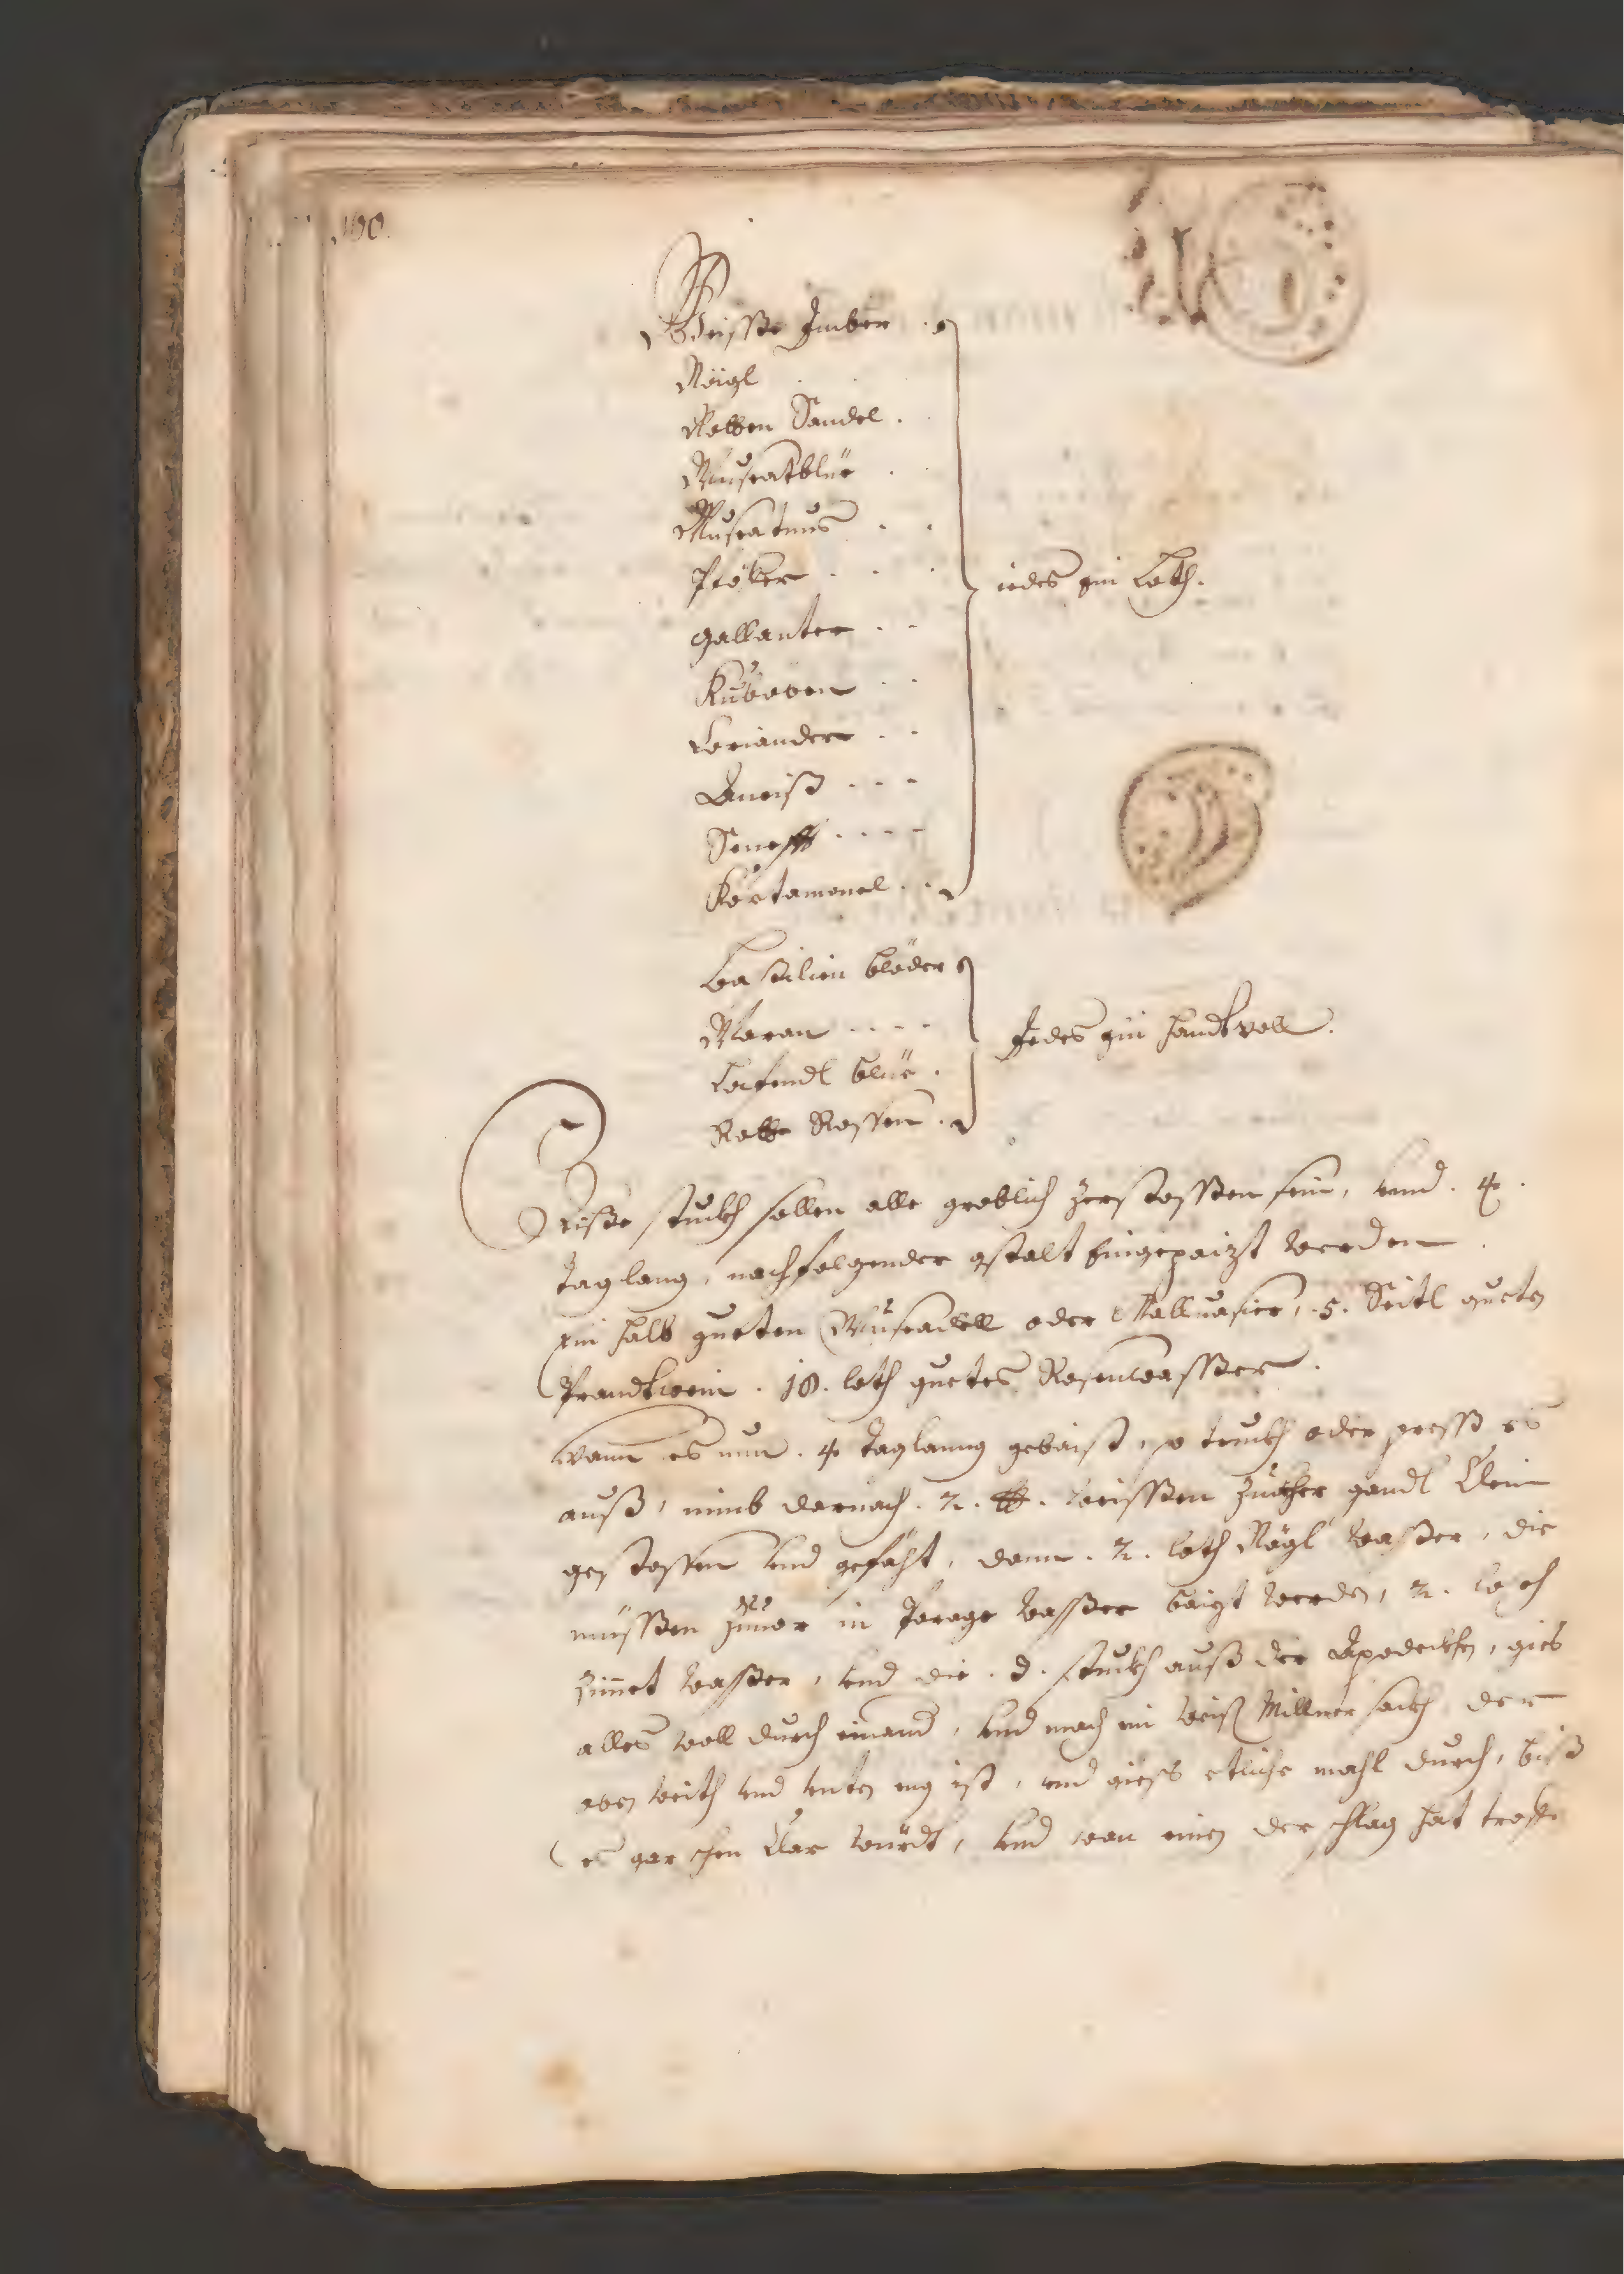 100.
Weisse Imber
Nägl
Rotten Sandel .
Muscatblüe
Muscatnus
Pföber
Gallanter
Kubeben
Coriander
Aneiß
Seneff
Kartamonel
iedes ein Loth.
Basilien bleder
Maran
Lafendl blüe .
Rotte Rossen .
Jedes ein handtvoll.
Diße stuckh sollen alle groblich zerstossen sein, vnd . 4 .
Tag lang, nachfolgender gstalt Eingepaizt werden
ein halb gueten Muscadell oder Malluasier, .5. Seitl gueten
Prandtwein . 18. loth guetes Rosenwasser .
Wann es nun . 4 Taglanng gebaist, so truckh oder press es
auß, nimb darnach . 2. ℔. weissen Zucker Candl klein
gestossen vnd gefäht, dann . 2. loth Nägl Wasser, die
müssen zuuor in Wasser baizt werden, 2. loth
Zimet wasser, vnd die . 3 . stuckh auß der Apodeckhen, gies
alles woll durch einand, vnd mach ein weiß Millner sackh der
oben weith vnd vnten eng ist, vnd giess etliche mahl durch, biß
es gar schen klar würdt, vnd wan einen der schlag hat troffe